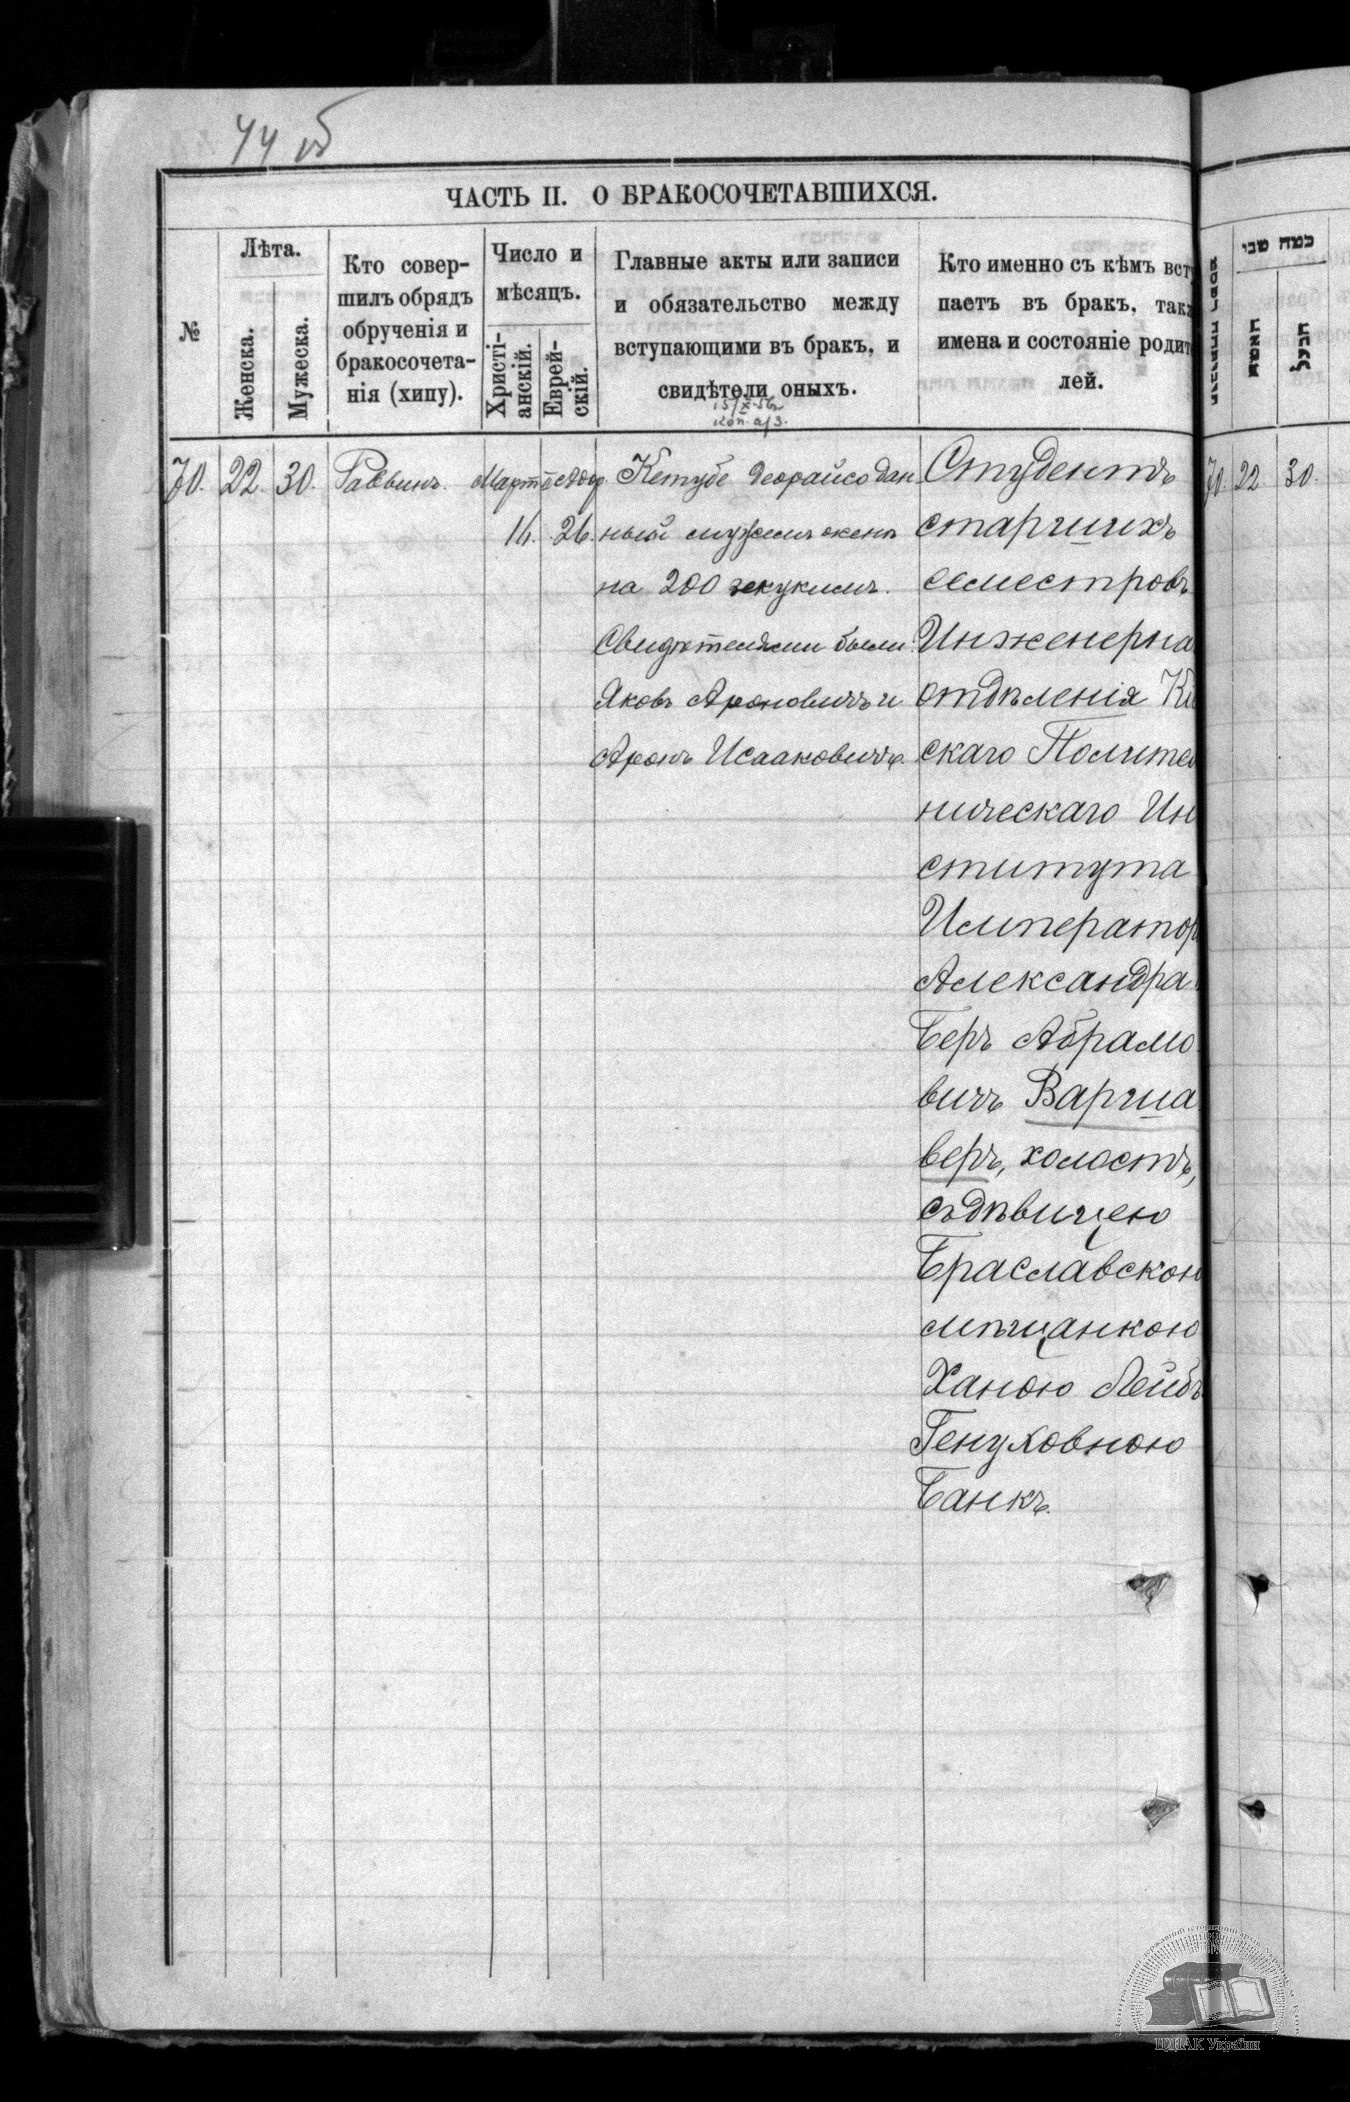 44 об
ЧАСТЬ II. О БРАКОСОЧЕТАВШИХСЯ.
№
Лѣта.
Женска.
Мужеска.
Кто совер-
шилъ обрядъ
обрученія и
бракосочета-
нія (хипу).
Число и
мѣсяцъ.
Христі-
анскій.
Еврей-
скій.
Главные акты или записи
и обязательство между
вступающими въ бракъ, и
свидѣтели оныхъ.
15/X-56г
коп. а/з.
Кто именно съ кѣмъ всту
паетъ въ бракъ, такж
имена и состояніе родит
лей.
70. 22. 30. Раввинъ. Мартъ
16. 26.
Кетубе Деорайсо дан
ный мужемъ женѣ
на 200 зекукимъ.
Свидѣтелями были:
Яковъ Ароновичъ и
Аронъ Исааковичъ.
Студентъ
старшихъ
семестровъ
Инженерна
отдѣленія Кі
скаго Политех
ническаго Ин
ститута
Император
Александра
Беръ Абрамо
вичъ Варша
веръ, холостъ,
съ дѣвицею
Браславскою
мѣщанкою
Ханою Лейбъ
Генуховною
Банкъ.
כמה שני
האשה
הבעל
70. 22. 30.
ЦДІАК України